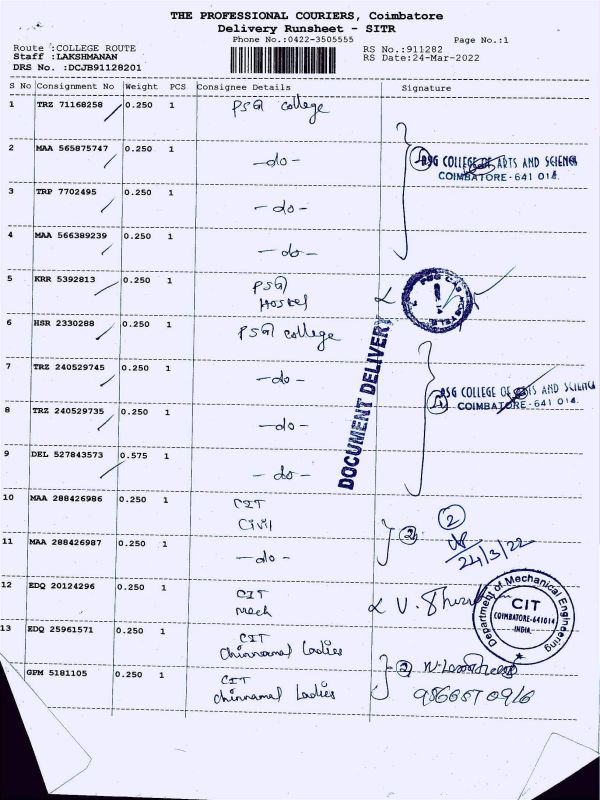 THE PROFESSIONAL COURIERS, Coimbatore
Delivery Runsheet - SITR
Phone No.:0422-3505555
Page No.:1
Route :COLLEGE ROUTE
RS No.:911282
Staff :LAKSHMANAN
RS Date:24-Mar-2022
DRS No. :DCJB91128201
S No Consignment No Weight PCS Consignee Details Signature
1 TRZ 71168258 0.250 1 PSG College
2 MAA 565875747 0.250 1 -do-
PSG COLLEGE OF ARTS AND SCIENCE
COIMBATORE - 641 014.
3 TRP 7702495 0.250 1 -do-
4 MAA 566389239 0.250 1 -do-
5 KRR 5392813 0.250 1 PSG
Hostel
PSG CAS HOSTEL
6 HSR 2330288 0.250 1 PSG College
DOCUMENT DELIVERY
7 TRZ 240529745 0.250 1 -do-
PSG COLLEGE OF ARTS AND SCIENCE
COIMBATORE - 641 014.
8 TRZ 240529735 0.250 1 -do-
9 DEL 527843573 0.575 1 -do-
10 MAA 288426986 0.250 1 CIT
Civil
2
2
24/3/22
11 MAA 288426987 0.250 1 -do-
12 EDQ 20124296 0.250 1 CIT
Mech
V.
Department of Mechanical Engineering
CIT
COIMBATORE-641014
INDIA.
13 EDQ 25961571 0.250 1 CIT
Chinnamal Ladies
2
GPM 5181105 0.250 1 CIT
Chinnamal Ladies